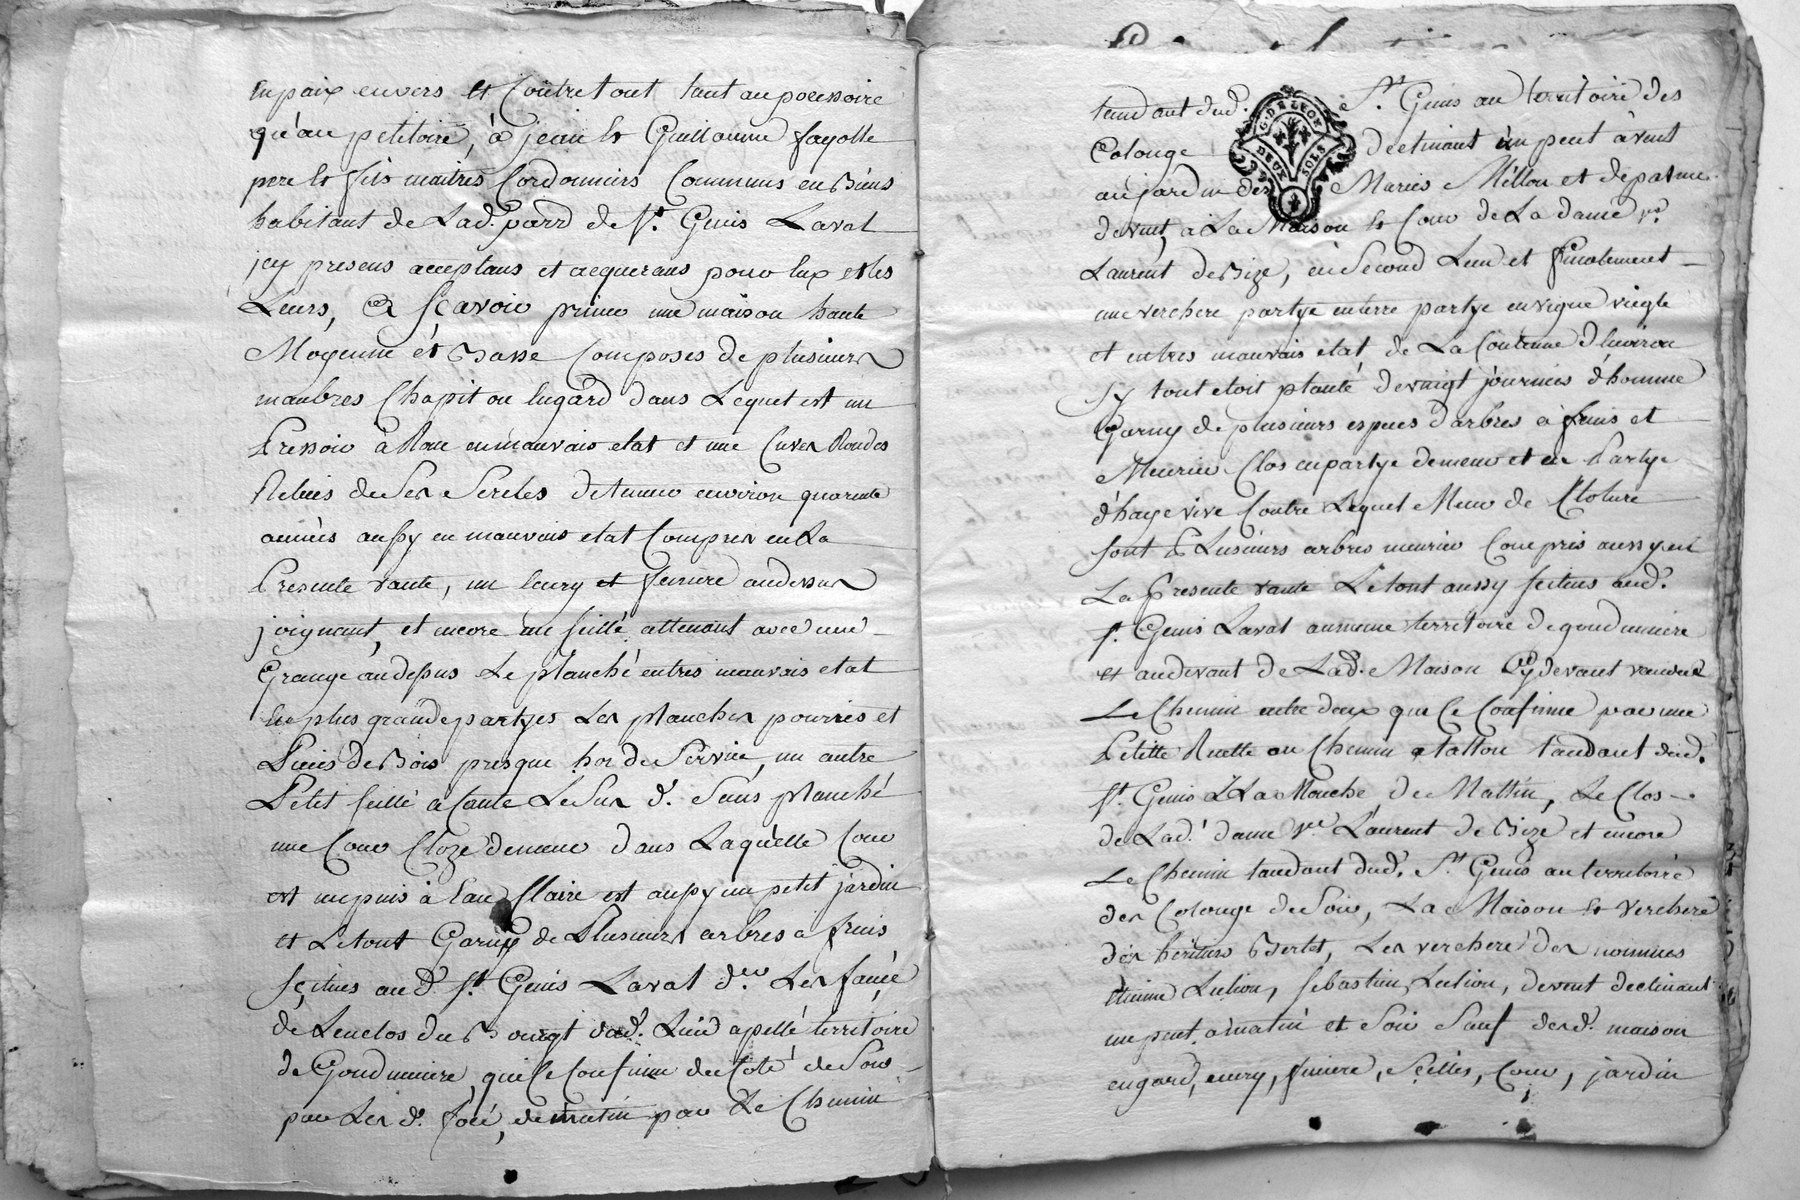 en paix envers et Contre tout tant au pocessoire
qu'au petitoire, à jean & Guillaume fayolle
pere & fils maitres Cordonniers Communs en Biens
habitant de Lad. parr. de St. Genis Laval
jcy presens acceptans et acquerans pour lux et les
Leurs, a Scavoir primo une maison haute
Moyenne et Basse Composes de plusieurs
manbres Chapit ou engard dans Lequel est un
Pressoir à Roue en mauvais etat et une Cuves Rondes
Reliés de Ses Sercles detenuë environ quarente
années aussy en mauvais etat Compres en La
Presente vante, un Ecury et feniere audessus
joignant, et encore un seillé attenant avec une
Grange au dessus Le planché entres mauvais etat
en plus grande partyes Les planches pourries et
Pieces de Bois presque hor de Service, un autre
Petit seillé à Coute Le Sus d. Sans planché
une Cour Cloze de meur dans Laquelle Cour
est un puis à Eau Claire est aussy un petit jardin
et Le tout Garny de Plusieurs arbres a fruis
Scitues aud. St. Genis Laval Les faucé
de Lenclos du Bourgt dud. Lieu apellé territoire
de Goudumiere, que Se Confinne du Coté de Soir
par Les d. focé, de matin par Le Chemin
tandant dud. St. Genis au territoire des
Colonge declinant un peut à vent
au jardin des Maries Millon et de
devent, à La Maison & Cour de La dame ve.
Laurent de Bize, en Second Lieu et finalement
une verchere partye enterre partye en vigne viegle
et entres mauvais etat de La Contenue dhuviron
sy tout etoit planté de vingt journées d'homme
Garny de plusieurs especes d'arbres à fruis et
Meurier Clos en partye de meur et en Partye
d'haye vive Contre Lequel Meur de Cloture
sont Plusieurs arbres meurier Compris aussy en
La Presente vante Le tout aussy scitues aud.
St. Genis Laval au meme territoire de goudumiere
et audevant de Lad. Maison Cy devant vandue
Le Chemin entre deux que Se Confinne par une
Petitte Ruette ou Chemin a tallon tandant dud.
St. Genis à La Mouche, de Mattin, Le Clos
de Lad. dame ve. Laurent de Bize et encore
Le Chemin tandant dud. St. Genis au territoire
des Colonge de Soir, La Maison & verchere
des heritiers Berlet, Les verchere des nommes
Etienne Lulion, Sebastien Lulion, devent declinant
un peut à matin et Soir Sauf desd. maison
engard, ecury, feniere, Seilles, Cour, jardin
G. DE LYON
DEUX SOLS